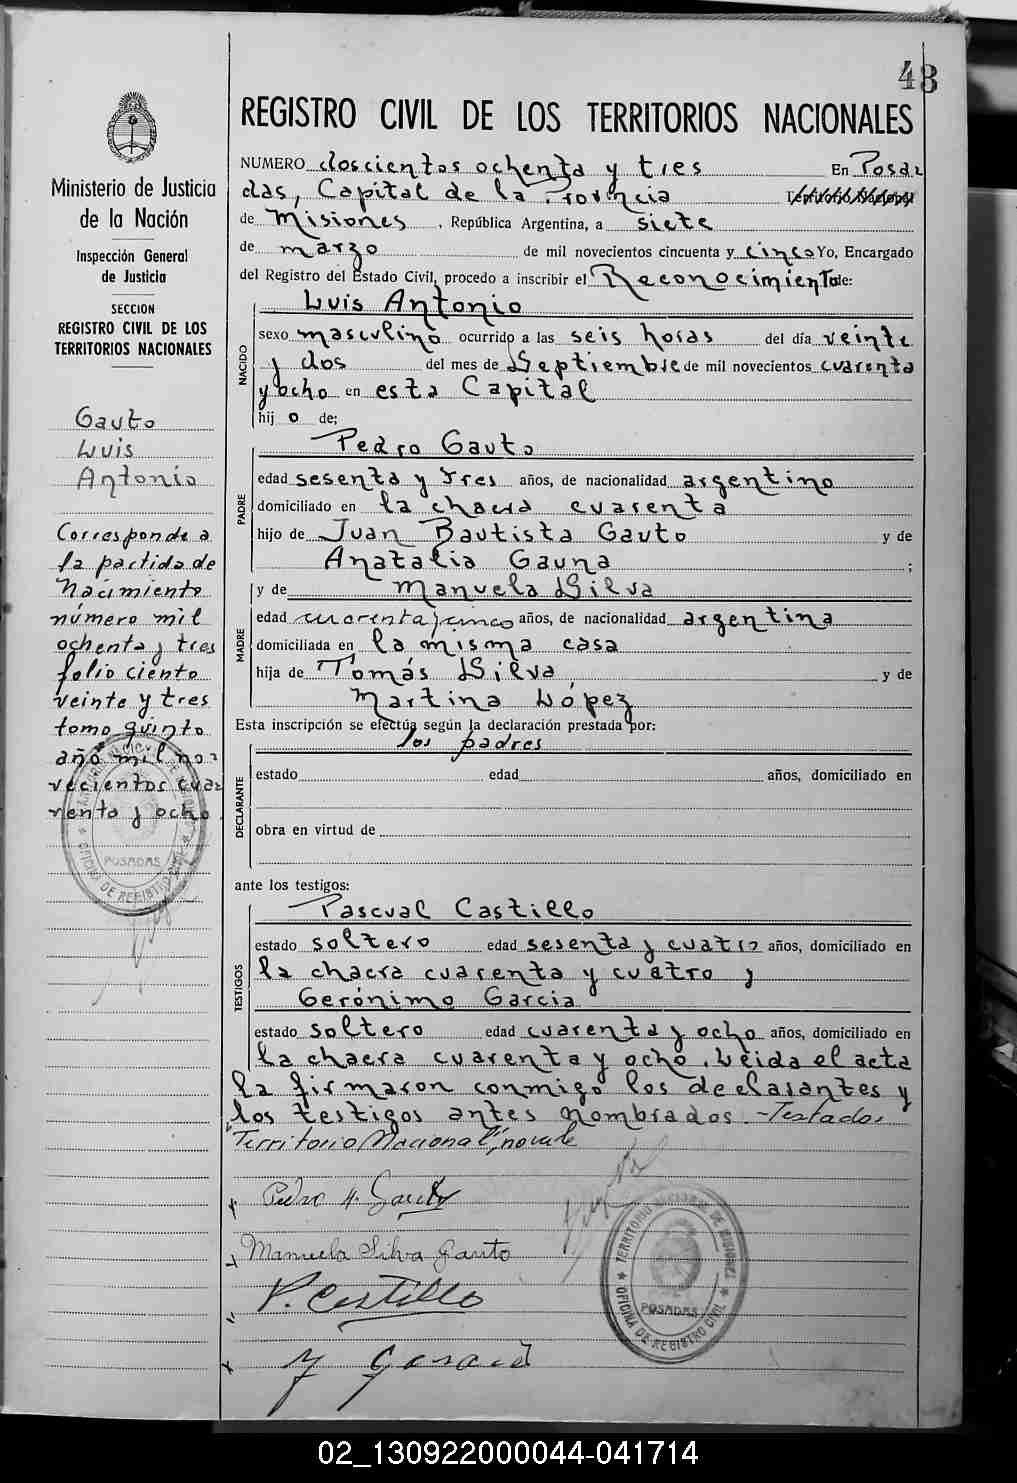 48
REGISTRO CIVIL DE LOS TERRITORIOS NACIONALES
Ministerio de Justicia
de la Nación
Inspección General
de Justicia
SECCION
REGISTRO CIVIL DE LOS
TERRITORIOS NACIONALES
Gauto
Luis
Antonio
Corresponde a
la partida de
Nacimiento
número mil
ochenta y tres
folio ciento
veinte y tres
tomo quinto
año mil no-
vecientos cua
renta y ocho
POSADAS
OFICINA DE REGISTRO CIVIL
NUMERO doscientos ochenta y tres En Posa
das, Capital de la Provincia Territorio Nacional
de Misiones, República Argentina, a siete
de marzo de mil novecientos cincuenta y cinco Yo, Encargado
del Registro del Estado Civil, procedo a inscribir el Reconocimiento de:
Luis Antonio
NACIDO
sexo masculino ocurrido a las seis horas del día veinte
y dos del mes de Septiembre de mil novecientos cuarenta
y ocho en esta Capital
hij o de;
Pedro Gauto
PADRE
edad sesenta y tres años, de nacionalidad argentino
domiciliado en la chacra cuarenta
hijo de Juan Bautista Gauto y de
Anatalia Gauna ;
y de Manuela Silva
MADRE
edad cuarenta y cinco años, de nacionalidad argentina
domiciliada en la misma casa
hija de Tomás Silva y de
Martina López
Esta inscripción se efectúa según la declaración prestada por:
los padres
DECLARANTE
estado edad años, domiciliado en
obra en virtud de
ante los testigos:
Pascual Castillo
TESTIGOS
estado soltero edad sesenta y cuatro años, domiciliado en
la chacra cuarenta y cuatro y
Gerónimo Garcia
estado soltero edad cuarenta y ocho años, domiciliado en
la chacra cuarenta y ocho. Leida el acta
la firmaron conmigo los declarantes y
los testigos antes nombrados.-Testado:
"Territorio Nacional", no vale
Pedro A. Gauto
Manuela Silva Gauto
P. Castillo
TERRITORIO NACIONAL DE MISIONES
POSADAS
OFICINA DE REGISTRO CIVIL
02_130922000044-041714